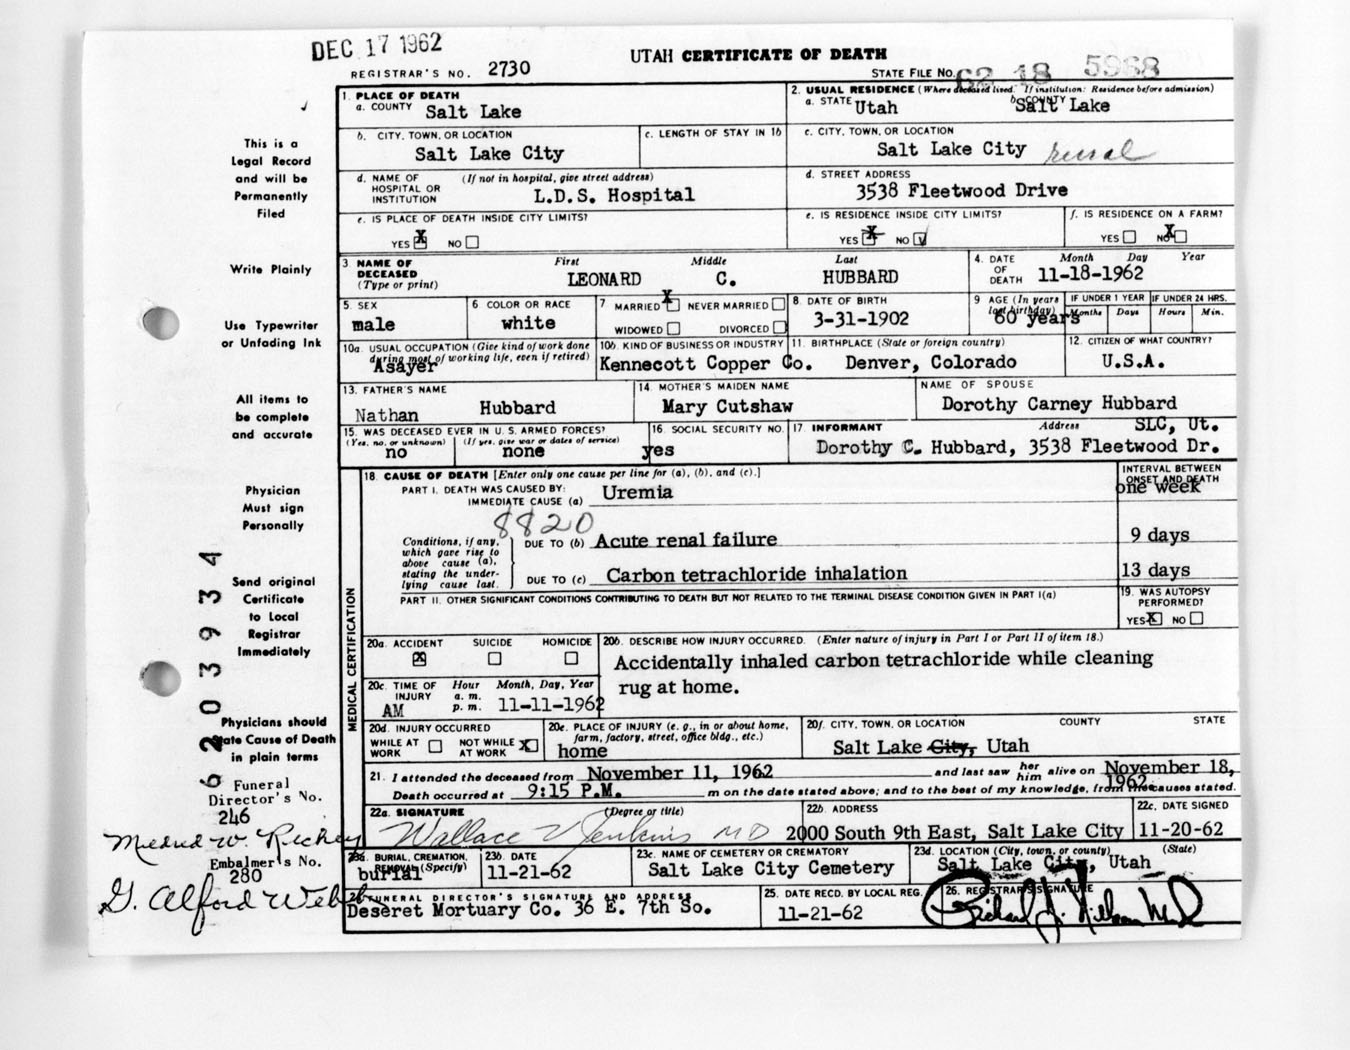 DEC 17 1962
UTAH CERTIFICATE OF DEATH
REGISTRAR'S NO. 2730
STATE FILE NO. 62 18 5968
This is a
Legal Record
and will be
Permanently
Filed
Write Plainly
Use Typewriter
or Unfading Ink
All items to
be complete
and accurate
Physician
Must sign
Personally
Send original
Certificate
to Local
Registrar
Immediately
Physicians should
state Cause of Death
in plain terms
62 039934
Funeral
Director's No.
246
Mildred W. Rickey
Embalmer's No.
280
G. Alford Webb
1. PLACE OF DEATH
a. COUNTY Salt Lake
2. USUAL RESIDENCE (Where deceased lived. If institution: Residence before admission)
a. STATE Utah b. COUNTY Salt Lake
b. CITY, TOWN, OR LOCATION
Salt Lake City
c. LENGTH OF STAY IN 1b
c. CITY, TOWN, OR LOCATION
Salt Lake City rural
d. NAME OF HOSPITAL OR INSTITUTION (If not in hospital, give street address)
L.D.S. Hospital
d. STREET ADDRESS
3538 Fleetwood Drive
e. IS PLACE OF DEATH INSIDE CITY LIMITS?
YES X NO
e. IS RESIDENCE INSIDE CITY LIMITS?
YES X NO V
f. IS RESIDENCE ON A FARM?
YES NO X
3 NAME OF DECEASED (Type or print)
First Middle Last
LEONARD C. HUBBARD
4. DATE OF DEATH Month Day Year
11-18-1962
5. SEX
male
6 COLOR OR RACE
white
7 MARRIED X NEVER MARRIED
WIDOWED DIVORCED
8. DATE OF BIRTH
3-31-1902
9 AGE (In years last birthday)
60 years
IF UNDER 1 YEAR
Months Days
IF UNDER 24 HRS.
Hours Min.
10a. USUAL OCCUPATION (Give kind of work done during most of working life, even if retired)
Asayer
10b. KIND OF BUSINESS OR INDUSTRY
Kennecott Copper Co.
11. BIRTHPLACE (State or foreign country)
Denver, Colorado
12. CITIZEN OF WHAT COUNTRY?
U.S.A.
13. FATHER'S NAME
Nathan Hubbard
14. MOTHER'S MAIDEN NAME
Mary Cutshaw
NAME OF SPOUSE
Dorothy Carney Hubbard
15. WAS DECEASED EVER IN U. S. ARMED FORCES?
(Yes, no, or unknown) (If yes, give war or dates of service)
no none
16. SOCIAL SECURITY NO.
yes
17. INFORMANT Address
Dorothy C. Hubbard, 3538 Fleetwood Dr. SLC, Ut.
MEDICAL CERTIFICATION
18. CAUSE OF DEATH [Enter only one cause per line for (a), (b), and (c).]
INTERVAL BETWEEN ONSET AND DEATH
PART I. DEATH WAS CAUSED BY:
IMMEDIATE CAUSE (a) Uremia one week
8820
Conditions, if any, which gave rise to above cause (a), stating the underlying cause last.
DUE TO (b) Acute renal failure 9 days
DUE TO (c) Carbon tetrachloride inhalation 13 days
PART II. OTHER SIGNIFICANT CONDITIONS CONTRIBUTING TO DEATH BUT NOT RELATED TO THE TERMINAL DISEASE CONDITION GIVEN IN PART I(a)
19. WAS AUTOPSY PERFORMED?
YES X NO
20a. ACCIDENT SUICIDE HOMICIDE
X
20b. DESCRIBE HOW INJURY OCCURRED. (Enter nature of injury in Part I or Part II of item 18.)
Accidentally inhaled carbon tetrachloride while cleaning
rug at home.
20c. TIME OF INJURY Hour a. m. p. m. Month, Day, Year
AM 11-11-1962
20d. INJURY OCCURRED
WHILE AT WORK NOT WHILE AT WORK X
20e. PLACE OF INJURY (e. g., in or about home, farm, factory, street, office bldg., etc.)
home
20f. CITY, TOWN, OR LOCATION COUNTY STATE
Salt Lake City, Utah
21. I attended the deceased from November 11, 1962 and last saw her him alive on November 18, 1962
Death occurred at 9:15 P.M. m on the date stated above; and to the best of my knowledge, from the causes stated.
22a. SIGNATURE (Degree or title)
Wallace V Jenkins MD
22b. ADDRESS
2000 South 9th East, Salt Lake City
22c. DATE SIGNED
11-20-62
23a. BURIAL, CREMATION, REMOVAL (Specify)
burial
23b. DATE
11-21-62
23c. NAME OF CEMETERY OR CREMATORY
Salt Lake City Cemetery
23d. LOCATION (City, town, or county) (State)
Salt Lake City, Utah
24. FUNERAL DIRECTOR'S SIGNATURE AND ADDRESS
Deseret Mortuary Co. 36 E. 7th So.
25. DATE RECD. BY LOCAL REG.
11-21-62
26. REGISTRAR'S SIGNATURE